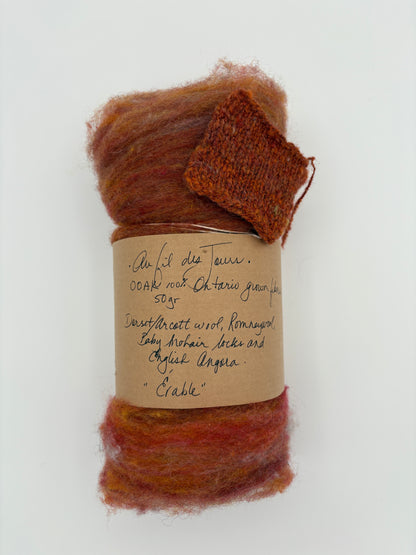 . Au fil des Jours.
OOAK 100% Ontario grown
50gr
Dorset/Arcott wool, Romney wool,
Baby mohair locks and
English Angora.
"Érable"